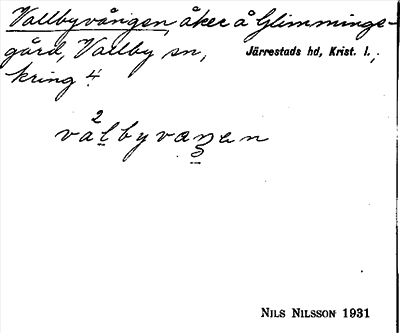 Vallbyvången, åker å Glimminge-
gård, Vallby sn, Järrestads hd, Krist. l.,
kring 4.
NILS NILSSON 1931